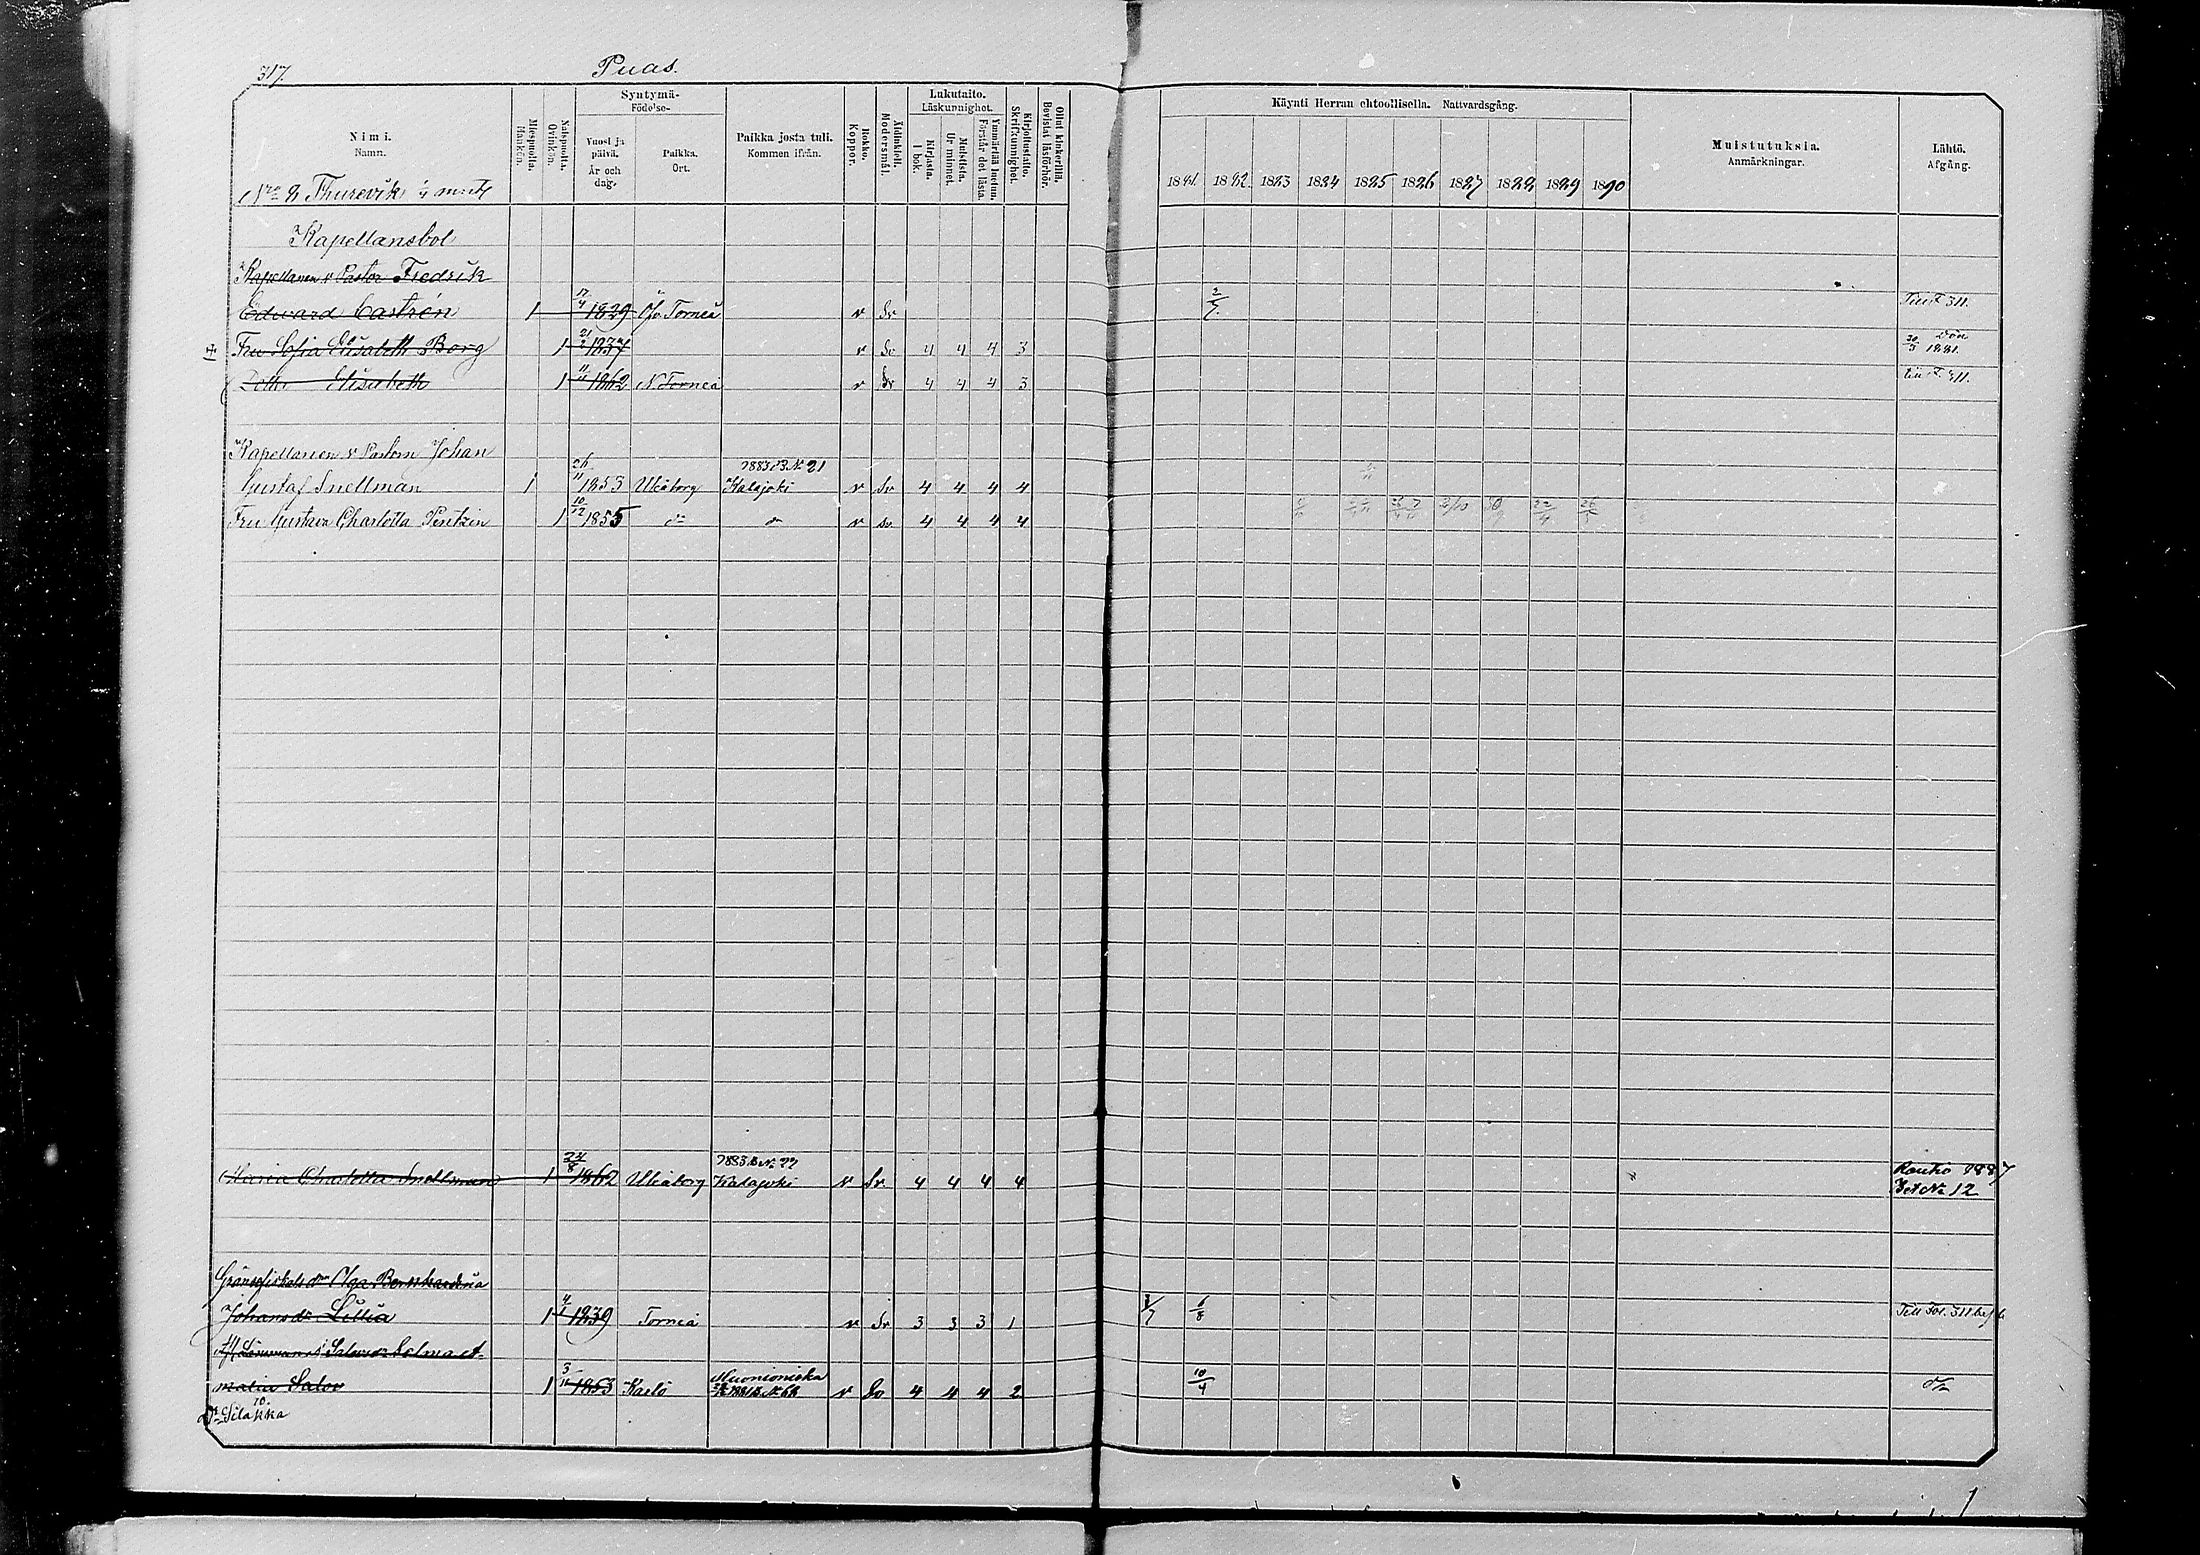 317.
Puas.
Nimi.
Namn.
Miespuolta.
Mankön.
Naispuolta.
Qvinkön.
Syntymä-
Födelse-
Vuosi ja päivä.
År och dag.
Paikka.
Ort.
Paikka josta tuli.
Kommen ifrån.
Rokko.
Koppor.
Äidinkieli.
Modersmål.
Lukutaito.
Läskunnighet.
Kirjasta.
I bok.
Muistista.
Ur minnet.
Ymmärtää luetun.
Förstår det lästa.
Kirjoitustaito.
Skrifkunnighet.
Ollut kinkerillä.
Bevistat läsförhör.
Käynti Herran ehtoollisella. Nattvardsgång.
1881. 1882. 1883 1884 1885 1886 1887 1888 1889 1890
Muistutuksia.
Anmärkningar.
Lähtö.
Afgång.
Nro 8 Thurevik
Kapellansbol
Kapellanen v Pastor Fredrik
Edward Castrén 1 17/4 1829 Öfv. Torneå v Sv 2/7 311.
Fru Sofia Elisabeth Borg 1 21/2 1837 v Sv 4 4 4 3 Död 1881.
Dotter Elisabeth 1 11/4 1862 N. Torneå v Sv 4 4 4 3 311.
Kapellanen v Pastorn Johan
Gustaf Snellman 1 26/11 1853 Uleåborg 1883 B No 21 Kalajoki v Sv 4 4 4 4
Fru Gustava Charlotta Pentzin 1 10/12 1855 do do v sv 4 4 4 4 22/4
Maria Charlotta Snellman 1 24/8 1862 Uleåborg 1883 B No 22 Kalajoki v Sv. 4 4 4 4 Rautio 1887 Bet No 12
Olga Bernhardina
Johansdr Lillia 1 4/1 1839 Torneå v Sv 3 3 3 1 3/7 6/8 Till Fol. 311
Selma A-
malia Salov 1 3/11 1853 Karlö Muonioniska 1881 B. No 68 v Sv 4 4 4 2 10/4 do
No 10.
Silakka